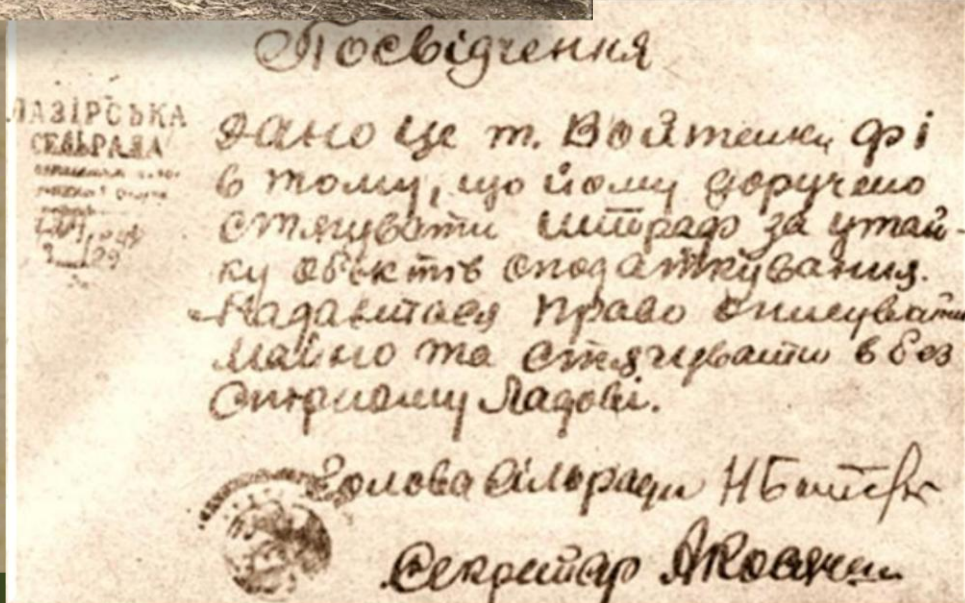 Посвідчення
ЛАЗІРСЬКА
СЕЛЬРАДА
29
Дано це т. Войтенку Фі
в тому, що йому доручено
стягувати штраф за утай-
ку обєктів оподаткування.
Надаеться право описувати
майно та стягувати в без
спірному ладові.
Голова сільради Н
Секретар